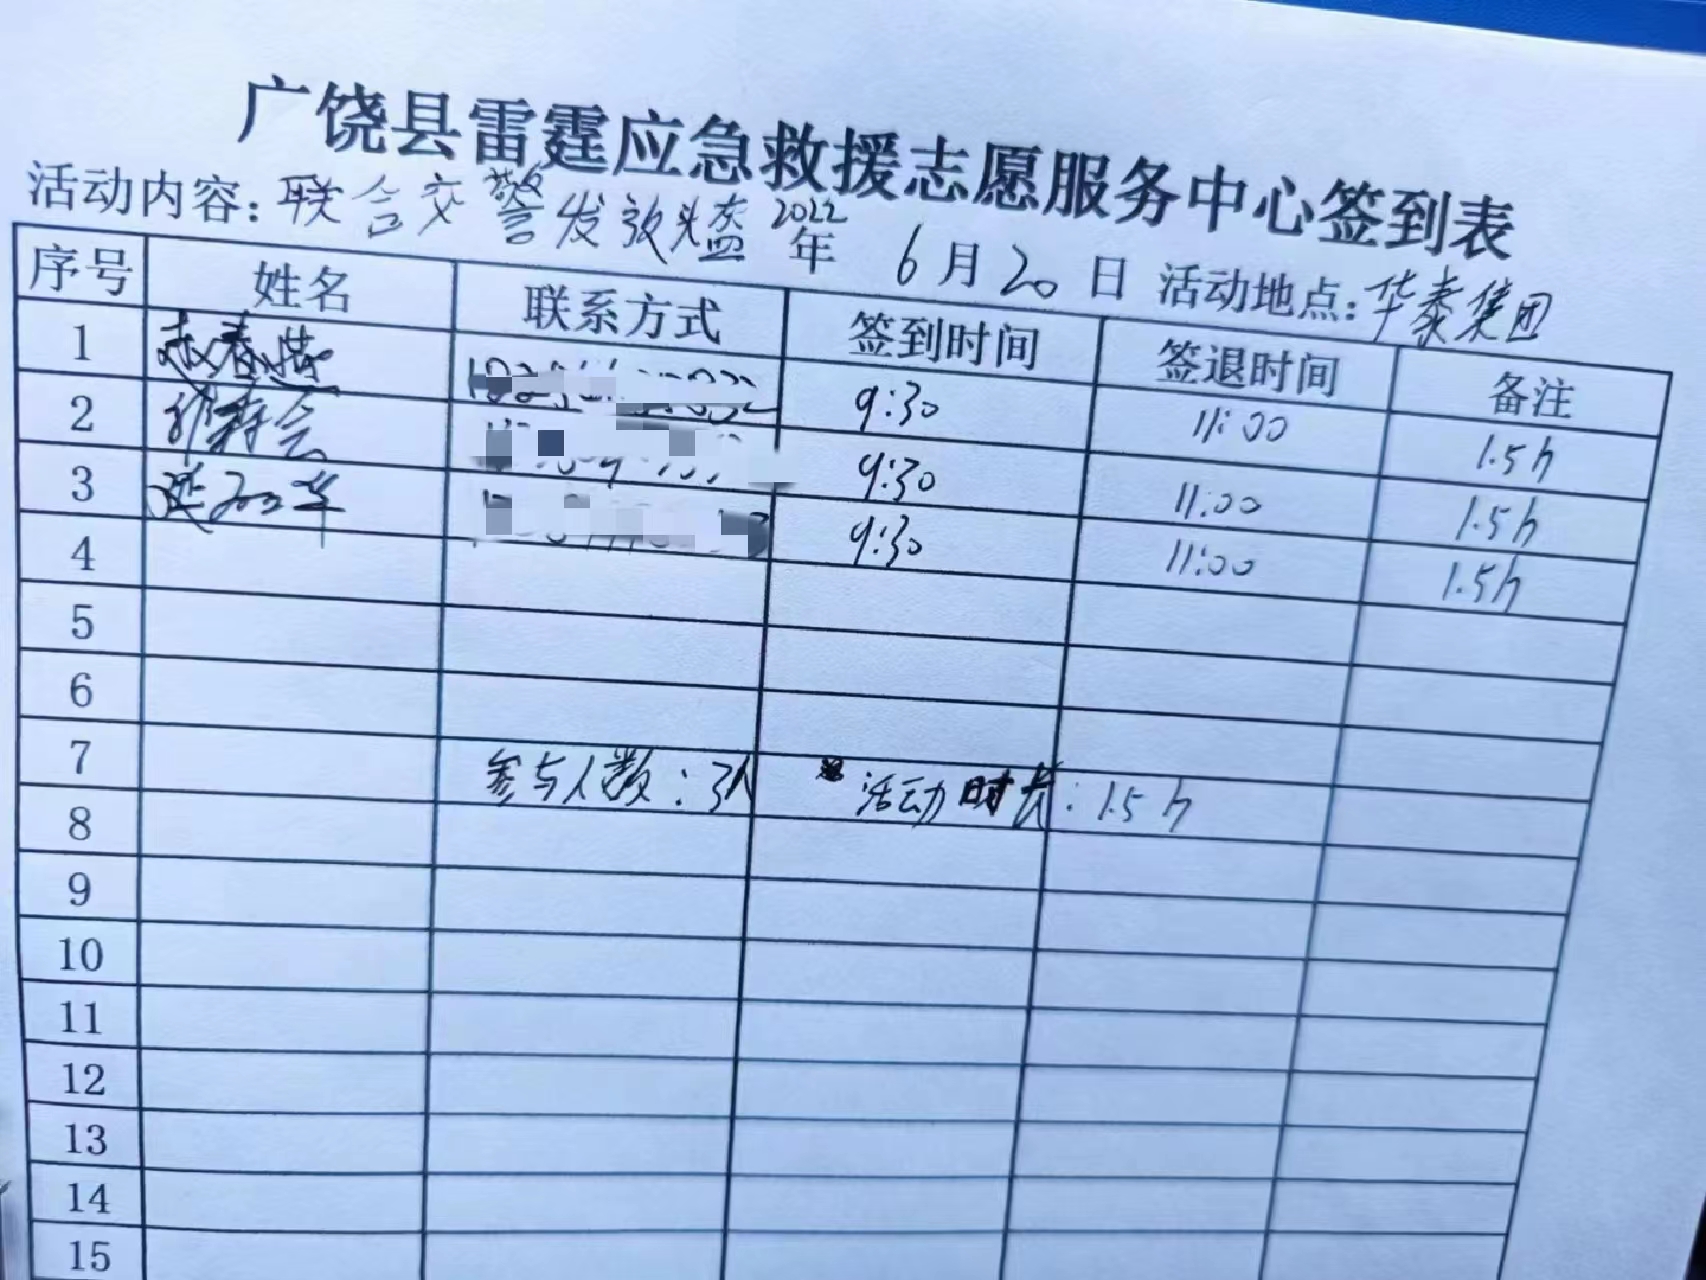 广饶县雷霆应急救援志愿服务中心签到表
活动内容：联合交警发放头盔 2022年 6月20日 活动地点：华泰集团
序号 姓名 联系方式 签到时间 签退时间 备注
1 赵春 9:30 11:00 1.5h
2 9:30 11:00 1.5h
3 9:30 11:00 1.5h
4
5
6
7 参与人数：3人 活动时长：1.5h
8
9
10
11
12
13
14
15